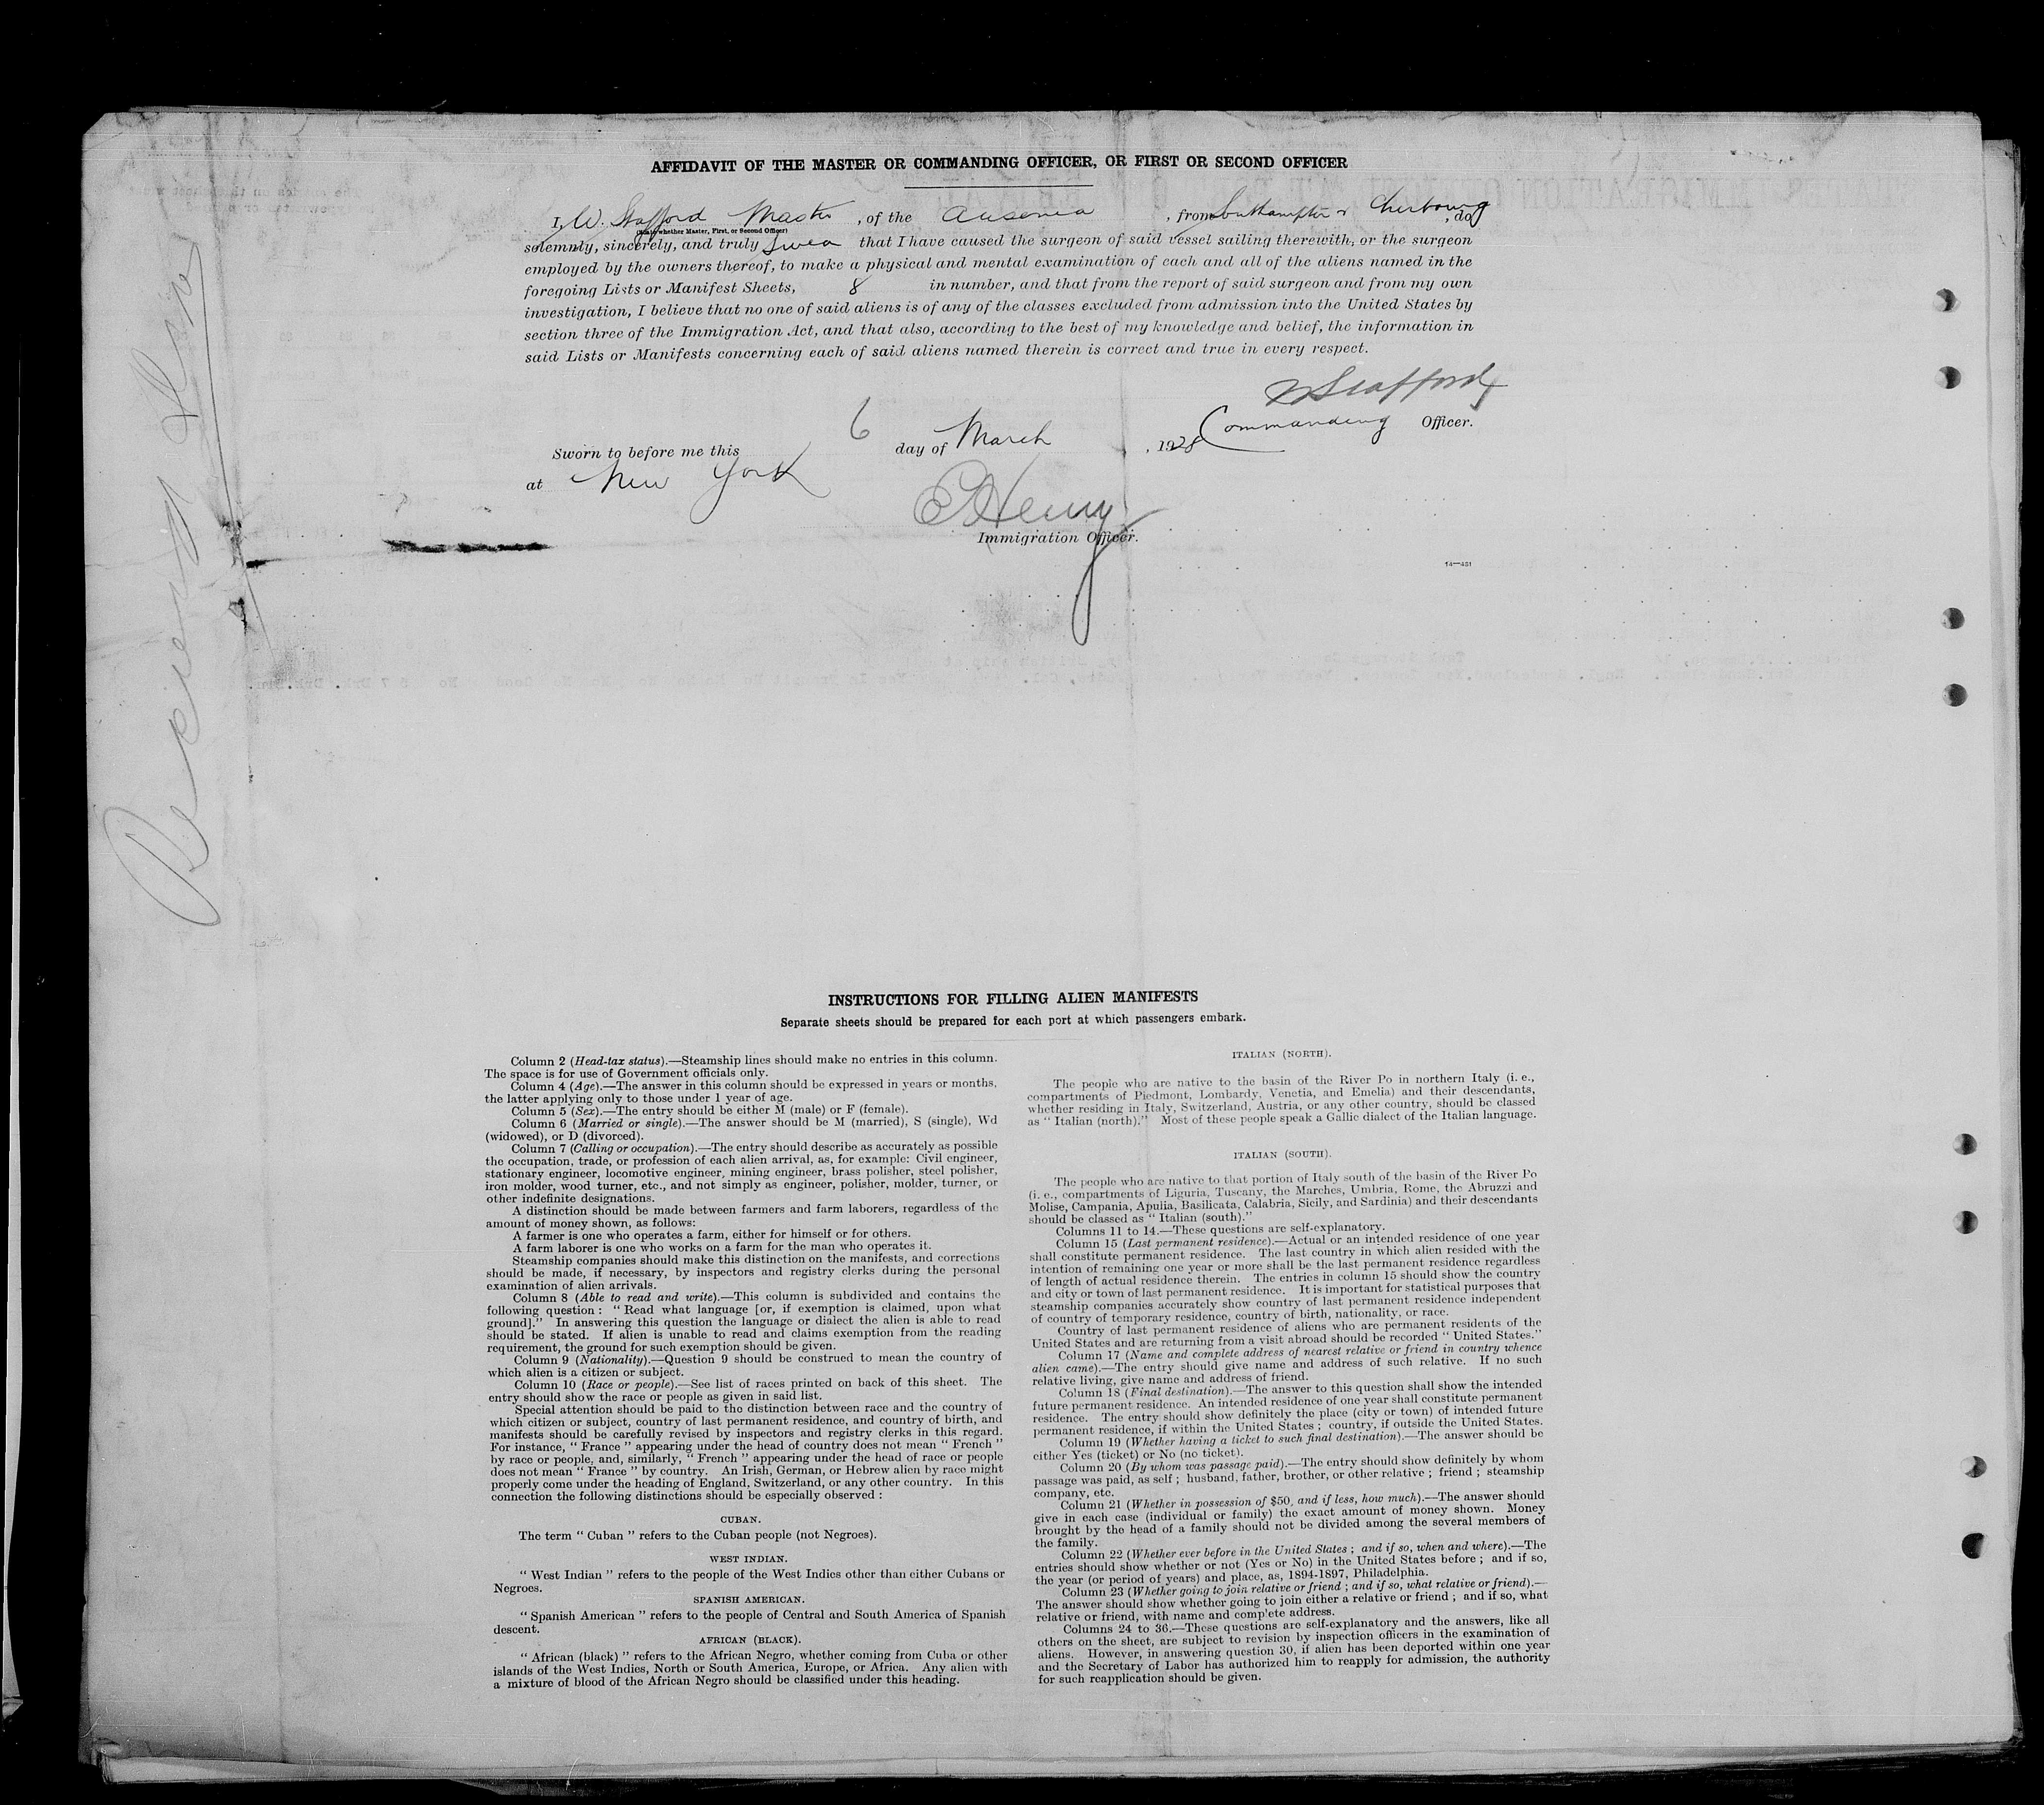 AFFIDAVIT OF THE MASTER OR COMMANDING OFFICER, OR FIRST OR SECOND OFFICER
I, W. Stafford Master, of the Ausonia, from Southampton & Cherbourg, do
(State whether Master, First, or Second Officer)
solemnly, sincerely, and truly swea that I have caused the surgeon of said vessel sailing therewith, or the surgeon
employed by the owners thereof, to make a physical and mental examination of each and all of the aliens named in the
foregoing Lists or Manifest Sheets, 8 in number, and that from the report of said surgeon and from my own
investigation, I believe that no one of said aliens is of any of the classes excluded from admission into the United States by
section three of the Immigration Act, and that also, according to the best of my knowledge and belief, the information in
said Lists or Manifests concerning each of said aliens named therein is correct and true in every respect.
W Stafford
Commanding Officer.
Sworn to before me this 6 day of March, 1928
at New York
Henry
Immigration Officer.
14—451
Record
INSTRUCTIONS FOR FILLING ALIEN MANIFESTS
Separate sheets should be prepared for each port at which passengers embark.
Column 2 (Head-tax status).—Steamship lines should make no entries in this column.
The space is for use of Government officials only.
Column 4 (Age).—The answer in this column should be expressed in years or months,
the latter applying only to those under 1 year of age.
Column 5 (Sex).—The entry should be either M (male) or F (female).
Column 6 (Married or single).—The answer should be M (married), S (single), Wd
(widowed), or D (divorced).
Column 7 (Calling or occupation).—The entry should describe as accurately as possible
the occupation, trade, or profession of each alien arrival, as, for example: Civil engineer,
stationary engineer, locomotive engineer, mining engineer, brass polisher, steel polisher,
iron molder, wood turner, etc., and not simply as engineer, polisher, molder, turner, or
other indefinite designations.
A distinction should be made between farmers and farm laborers, regardless of the
amount of money shown, as follows:
A farmer is one who operates a farm, either for himself or for others.
A farm laborer is one who works on a farm for the man who operates it.
Steamship companies should make this distinction on the manifests, and corrections
should be made, if necessary, by inspectors and registry clerks during the personal
examination of alien arrivals.
Column 8 (Able to read and write).—This column is subdivided and contains the
following question : “ Read what language [or, if exemption is claimed, upon what
ground].” In answering this question the language or dialect the alien is able to read
should be stated. If alien is unable to read and claims exemption from the reading
requirement, the ground for such exemption should be given.
Column 9 (Nationality).—Question 9 should be construed to mean the country of
which alien is a citizen or subject.
Column 10 (Race or people).—See list of races printed on back of this sheet. The
entry should show the race or people as given in said list.
Special attention should be paid to the distinction between race and the country of
which citizen or subject, country of last permanent residence, and country of birth, and
manifests should be carefully revised by inspectors and registry clerks in this regard.
For instance, “ France ” appearing under the head of country does not mean “ French ”
by race or people, and, similarly, “ French ” appearing under the head of race or people
does not mean “ France ” by country. An Irish, German, or Hebrew alien by race might
properly come under the heading of England, Switzerland, or any other country. In this
connection the following distinctions should be especially observed :
CUBAN.
The term “ Cuban ” refers to the Cuban people (not Negroes).
WEST INDIAN.
“ West Indian ” refers to the people of the West Indies other than either Cubans or
Negroes.
SPANISH AMERICAN.
“ Spanish American ” refers to the people of Central and South America of Spanish
descent.
AFRICAN (BLACK).
“ African (black) ” refers to the African Negro, whether coming from Cuba or other
islands of the West Indies, North or South America, Europe, or Africa. Any alien with
a mixture of blood of the African Negro should be classified under this heading.
ITALIAN (NORTH).
The people who are native to the basin of the River Po in northern Italy (i. e.,
compartments of Piedmont, Lombardy, Venetia, and Emelia) and their descendants,
whether residing in Italy, Switzerland, Austria, or any other country, should be classed
as “ Italian (north).” Most of these people speak a Gallic dialect of the Italian language.
ITALIAN (SOUTH).
The people who are native to that portion of Italy south of the basin of the River Po
(i. e., compartments of Liguria, Tuscany, the Marches, Umbria, Rome, the Abruzzi and
Molise, Campania, Apulia, Basilicata, Calabria, Sicily, and Sardinia) and their descendants
should be classed as “ Italian (south).”
Columns 11 to 14.—These questions are self-explanatory.
Column 15 (Last permanent residence).—Actual or an intended residence of one year
shall constitute permanent residence. The last country in which alien resided with the
intention of remaining one year or more shall be the last permanent residence regardless
of length of actual residence therein. The entries in column 15 should show the country
and city or town of last permanent residence. It is important for statistical purposes that
steamship companies accurately show country of last permanent residence independent
of country of temporary residence, country of birth, nationality, or race.
Country of last permanent residence of aliens who are permanent residents of the
United States and are returning from a visit abroad should be recorded “ United States.”
Column 17 (Name and complete address of nearest relative or friend in country whence
alien came).—The entry should give name and address of such relative. If no such
relative living, give name and address of friend.
Column 18 (Final destination).—The answer to this question shall show the intended
future permanent residence. An intended residence of one year shall constitute permanent
residence. The entry should show definitely the place (city or town) of intended future
permanent residence, if within the United States ; country, if outside the United States.
Column 19 (Whether having a ticket to such final destination).—The answer should be
either Yes (ticket) or No (no ticket).
Column 20 (By whom was passage paid).—The entry should show definitely by whom
passage was paid, as self ; husband, father, brother, or other relative ; friend ; steamship
company, etc.
Column 21 (Whether in possession of $50, and if less, how much).—The answer should
give in each case (individual or family) the exact amount of money shown. Money
brought by the head of a family should not be divided among the several members of
the family.
Column 22 (Whether ever before in the United States ; and if so, when and where).—The
entries should show whether or not (Yes or No) in the United States before ; and if so,
the year (or period of years) and place, as, 1894-1897, Philadelphia.
Column 23 (Whether going to join relative or friend ; and if so, what relative or friend).—
The answer should show whether going to join either a relative or friend ; and if so, what
relative or friend, with name and complete address.
Columns 24 to 36.—These questions are self-explanatory and the answers, like all
others on the sheet, are subject to revision by inspection officers in the examination of
aliens. However, in answering question 30, if alien has been deported within one year
and the Secretary of Labor has authorized him to reapply for admission, the authority
for such reapplication should be given.